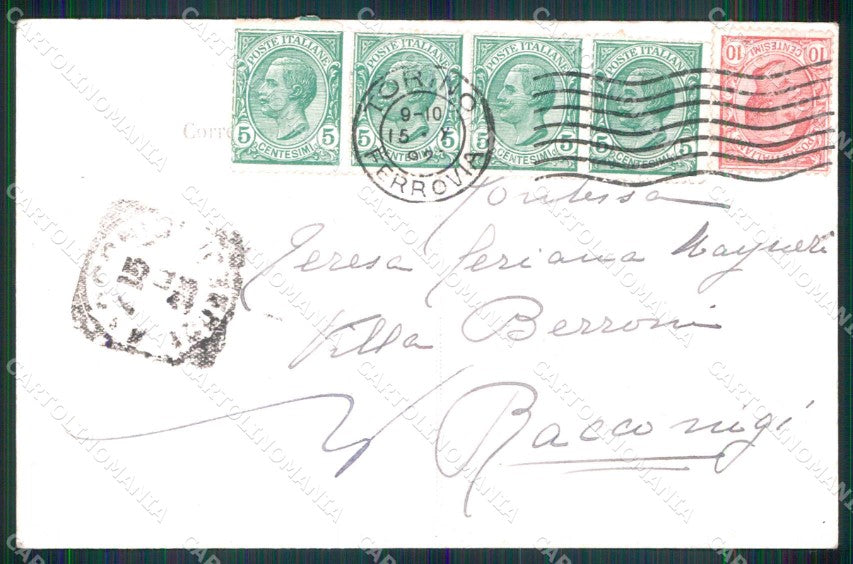 POSTE ITALIANE POSTE ITALIANE POSTE ITALIANE POSTE ITALIANE POSTE ITALIANE
5 CENTESIMI 5 5 CENTESIMI 5 5 CENTESIMI 5 5 CENTESIMI 5 10 CENTESIMI 10
TORINO
9-10
15
FERROVIA
Corr
Contessa
Teresa Feriana Mayneri
Villa Berroni
Racconigi
CARTOLINOMANIA